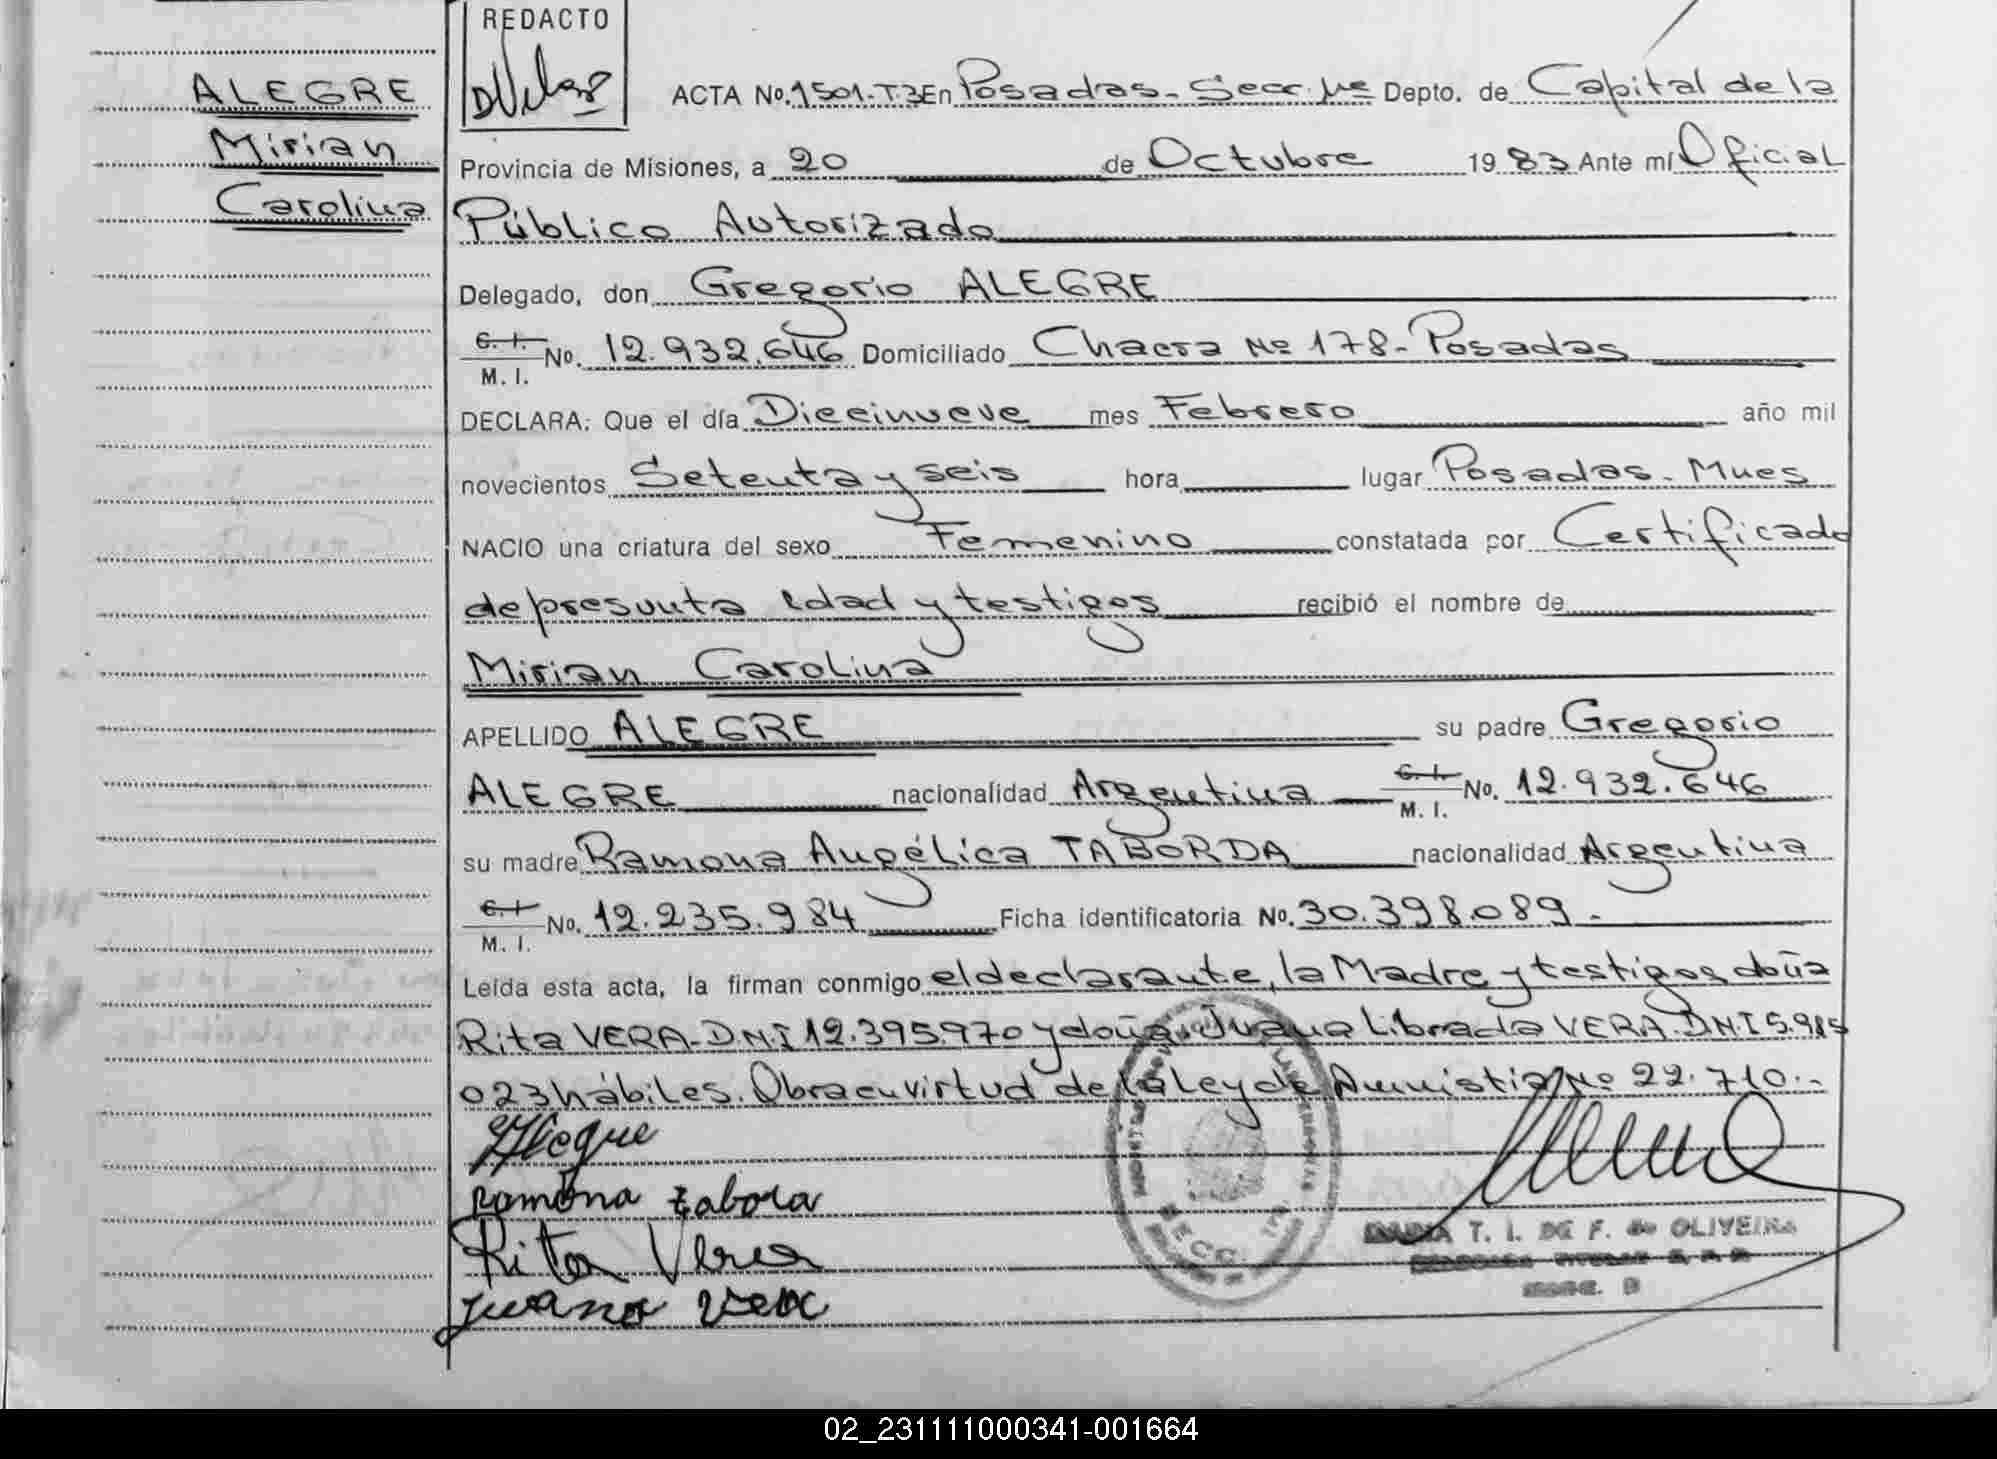 REDACTO
ALEGRE
Mirian
Carolina
ACTA No. 1501.T3 En Posadas - Secc. Depto. de Capital de la
Provincia de Misiones, a 20 de Octubre 1983 Ante mí Oficial
Público Autorizado
Delegado, don Gregorio ALEGRE
C. I. M. I. No. 12.932.646 Domiciliado Chacra Nº 178 - Posadas
DECLARA: Que el día Diecinueve mes Febrero año mil
novecientos Setenta y seis hora lugar Posadas - Mnes
NACIO una criatura del sexo Femenino constatada por Certificado
de presunta edad y testigos recibió el nombre de
Mirian Carolina
APELLIDO ALEGRE su padre Gregorio
ALEGRE nacionalidad Argentina C. I. M. I. No. 12.932.646
su madre Ramona Angélica TABORDA nacionalidad Argentina
C. I. M. I. No. 12.235.984 Ficha identificatoria No. 30.398.089.-
Leída esta acta, la firman conmigo el declarante, la Madre y testigos doña
Rita VERA - D.N.I 12.395.970 y doña Juana Librada VERA. D.N.I 5.985
023 hábiles. Obra en virtud de la Ley de Amnistía Nº 22.710.-
Alegre
Ramona tabora
Rita Vera
Juana Vera
SECC.
T. I. DE F. de OLIVEIRA
02_231111000341-001664